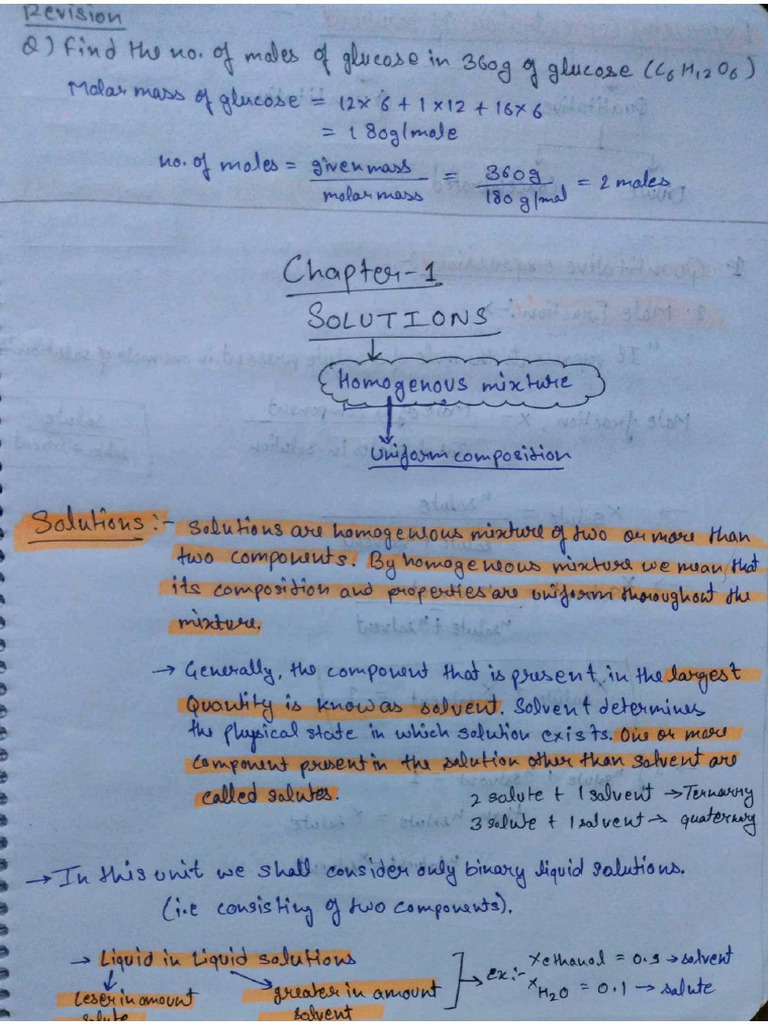 Revision
Q) Find the no. of moles of glucose in 360g of glucose (C6H12O6)
Molar mass of glucose = 12×6 + 1×12 + 16×6
= 180g/mole
no. of moles = given mass / molar mass = 360g / 180 g/mol = 2 moles
Chapter-1
SOLUTIONS
Homogenous mixture
Uniform composition
Solutions:- Solutions are homogeneous mixture of two or more than
two components. By homogeneous mixture we mean that
its composition and properties are uniform throughout the
mixture.
→ Generally, the component that is present in the largest
Quantity is know as solvent. Solvent determines
the physical state in which solution exists. One or more
component present in the solution other than solvent are
called solutes.
2 solute + 1 solvent → Ternarny
3 solute + 1 solvent → quaternary
→ In this unit we shall consider only binary liquid solutions.
(i.e consisting of two components).
→ Liquid in Liquid solutions
leser in amount
solute
greater in amount
solvent
→ ex:- xethanol = 0.9 → solvent
xH2O = 0.1 → solute